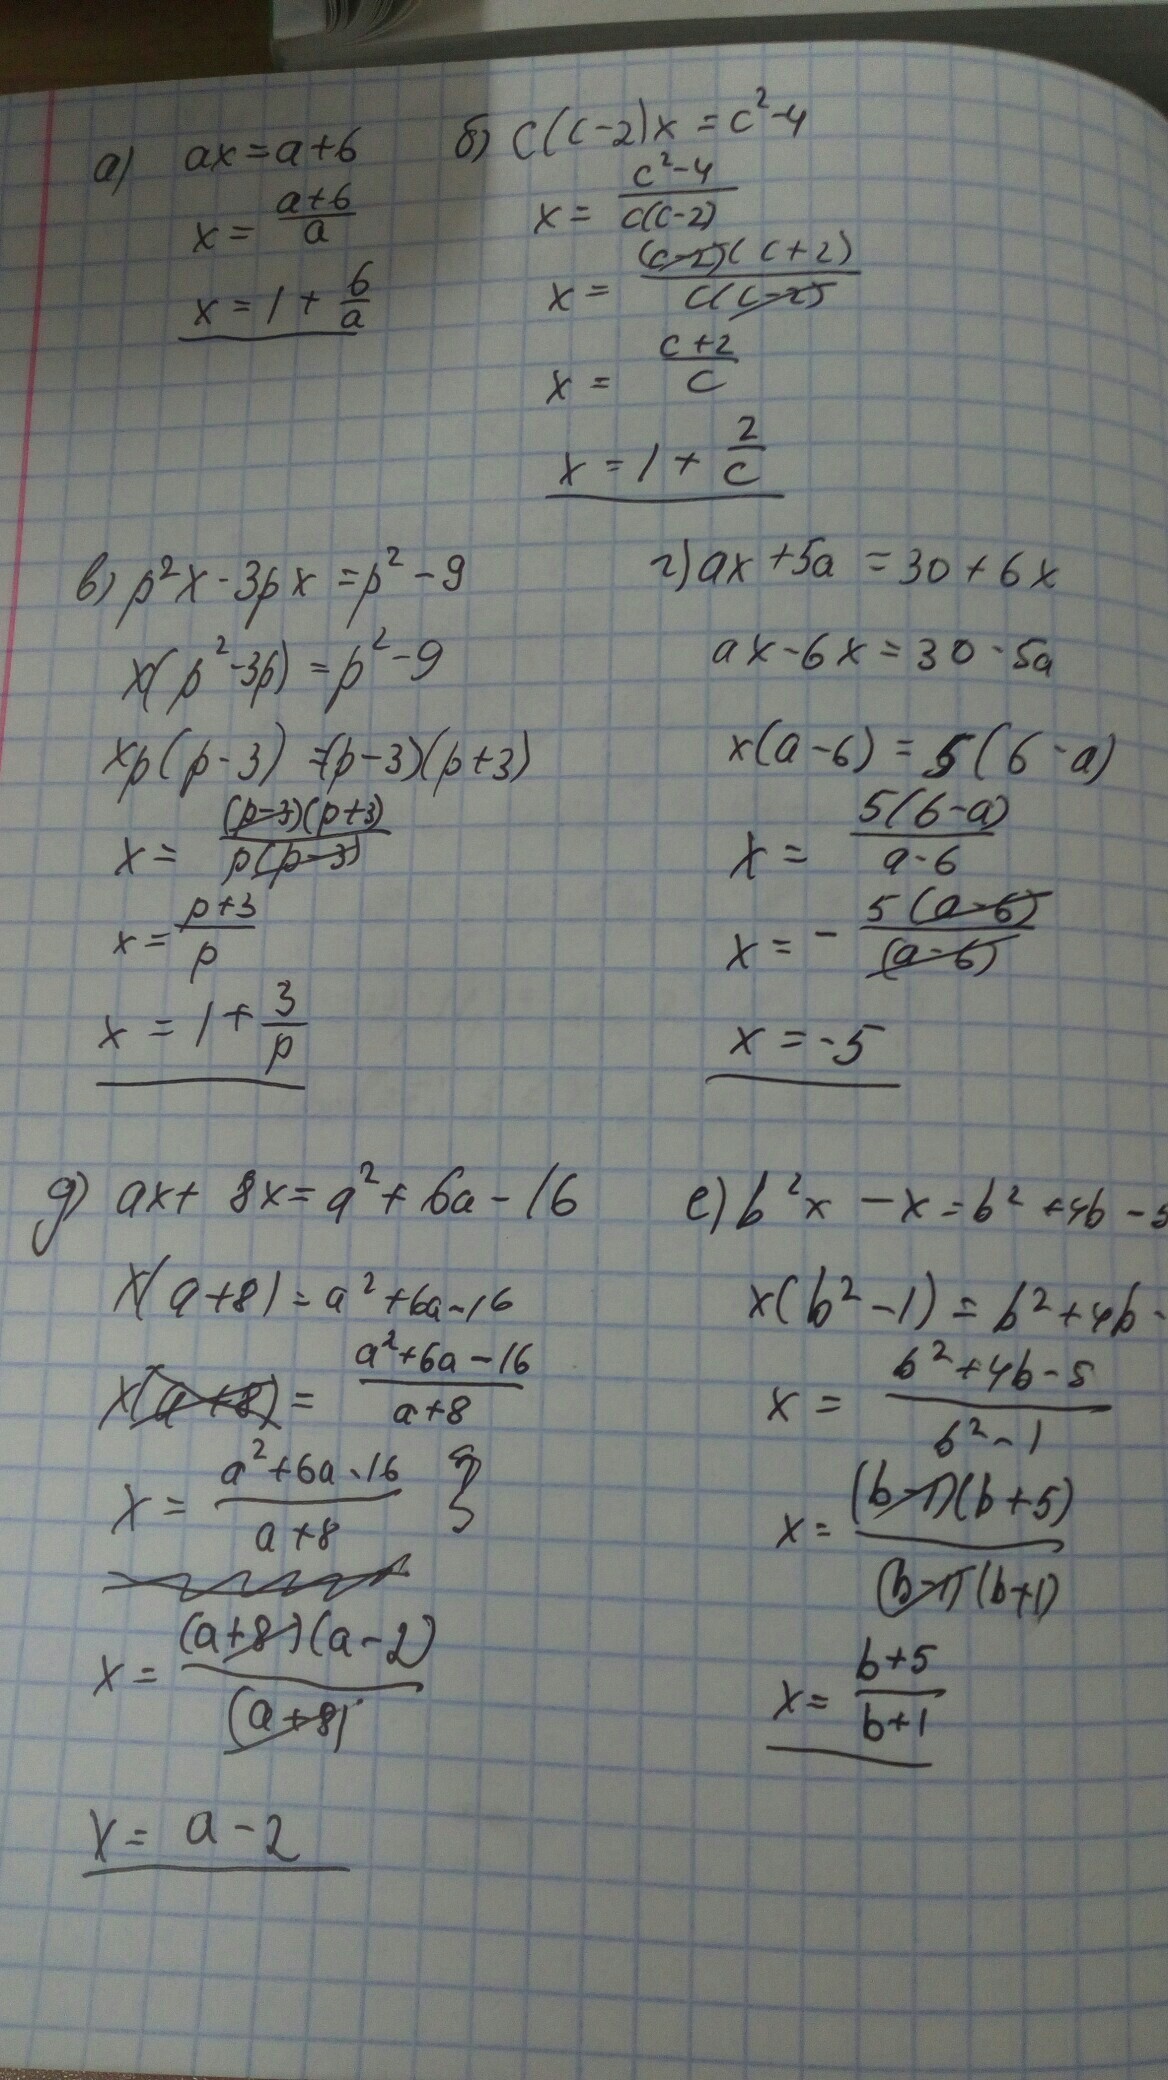 а) ax = a+6
x = \frac{a+6}{a}
x = 1 + \frac{6}{a}
б) c(c-2)x = c²-4
x = \frac{c²-4}{c(c-2)}
x = \frac{(c-2)(c+2)}{c(c-2)}
x = \frac{c+2}{c}
x = 1 + \frac{2}{c}
в) p²x - 3px = p² - 9
x(p²-3p) = p²-9
xp(p-3) = (p-3)(p+3)
x = \frac{(p-3)(p+3)}{p(p-3)}
x = \frac{p+3}{p}
x = 1 + \frac{3}{p}
г) ax + 5a = 30 + 6x
ax - 6x = 30 - 5a
x(a-6) = 5(6-a)
x = \frac{5(6-a)}{a-6}
x = - \frac{5(a-6)}{(a-6)}
x = -5
д) ax + 8x = a² + 6a - 16
x(a+8) = a² + 6a - 16
x(a+8) = \frac{a²+6a-16}{a+8}
x = \frac{a²+6a-16}{a+8}
x = \frac{(a+8)(a-2)}{(a+8)}
x = a - 2
е) b²x - x = b² + 4b - 5
x(b²-1) = b² + 4b -
x = \frac{b²+4b-5}{b²-1}
x = \frac{(b-1)(b+5)}{(b-1)(b+1)}
x = \frac{b+5}{b+1}